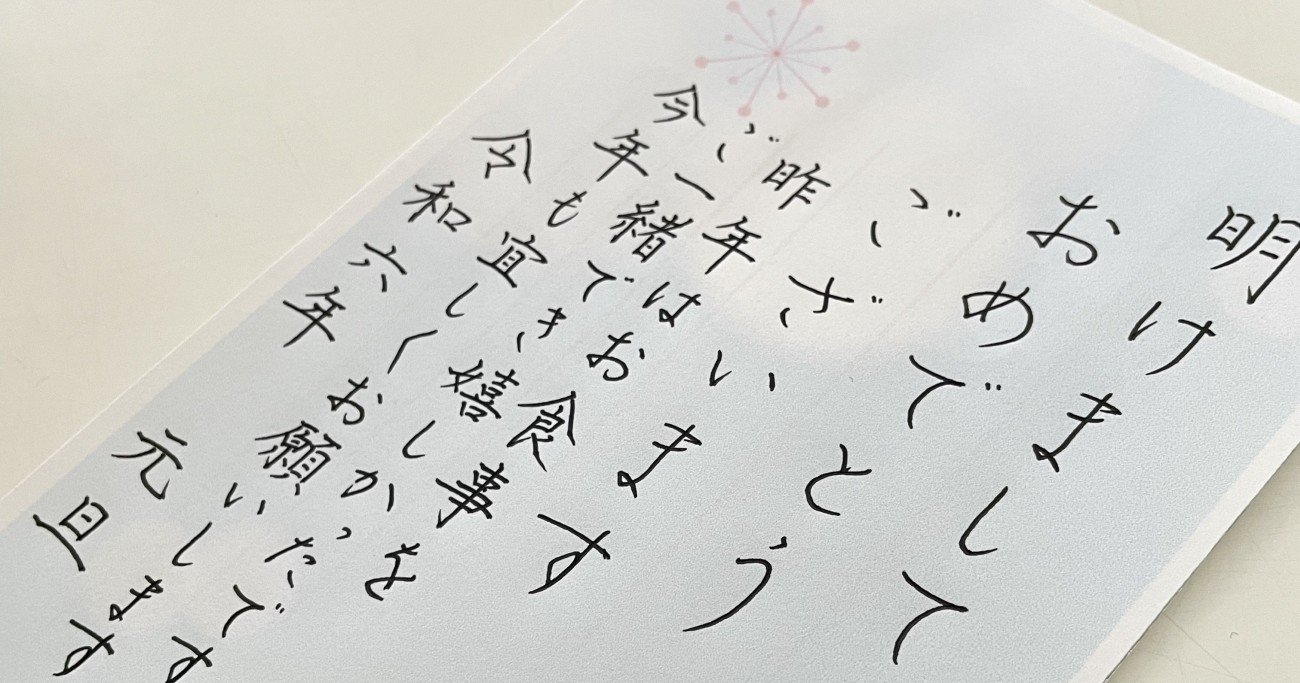 明けまして
おめでとう
ございます
昨年はお食事を
ご一緒でき嬉しかったです
今年も宜しくお願いします
令和六年 元旦